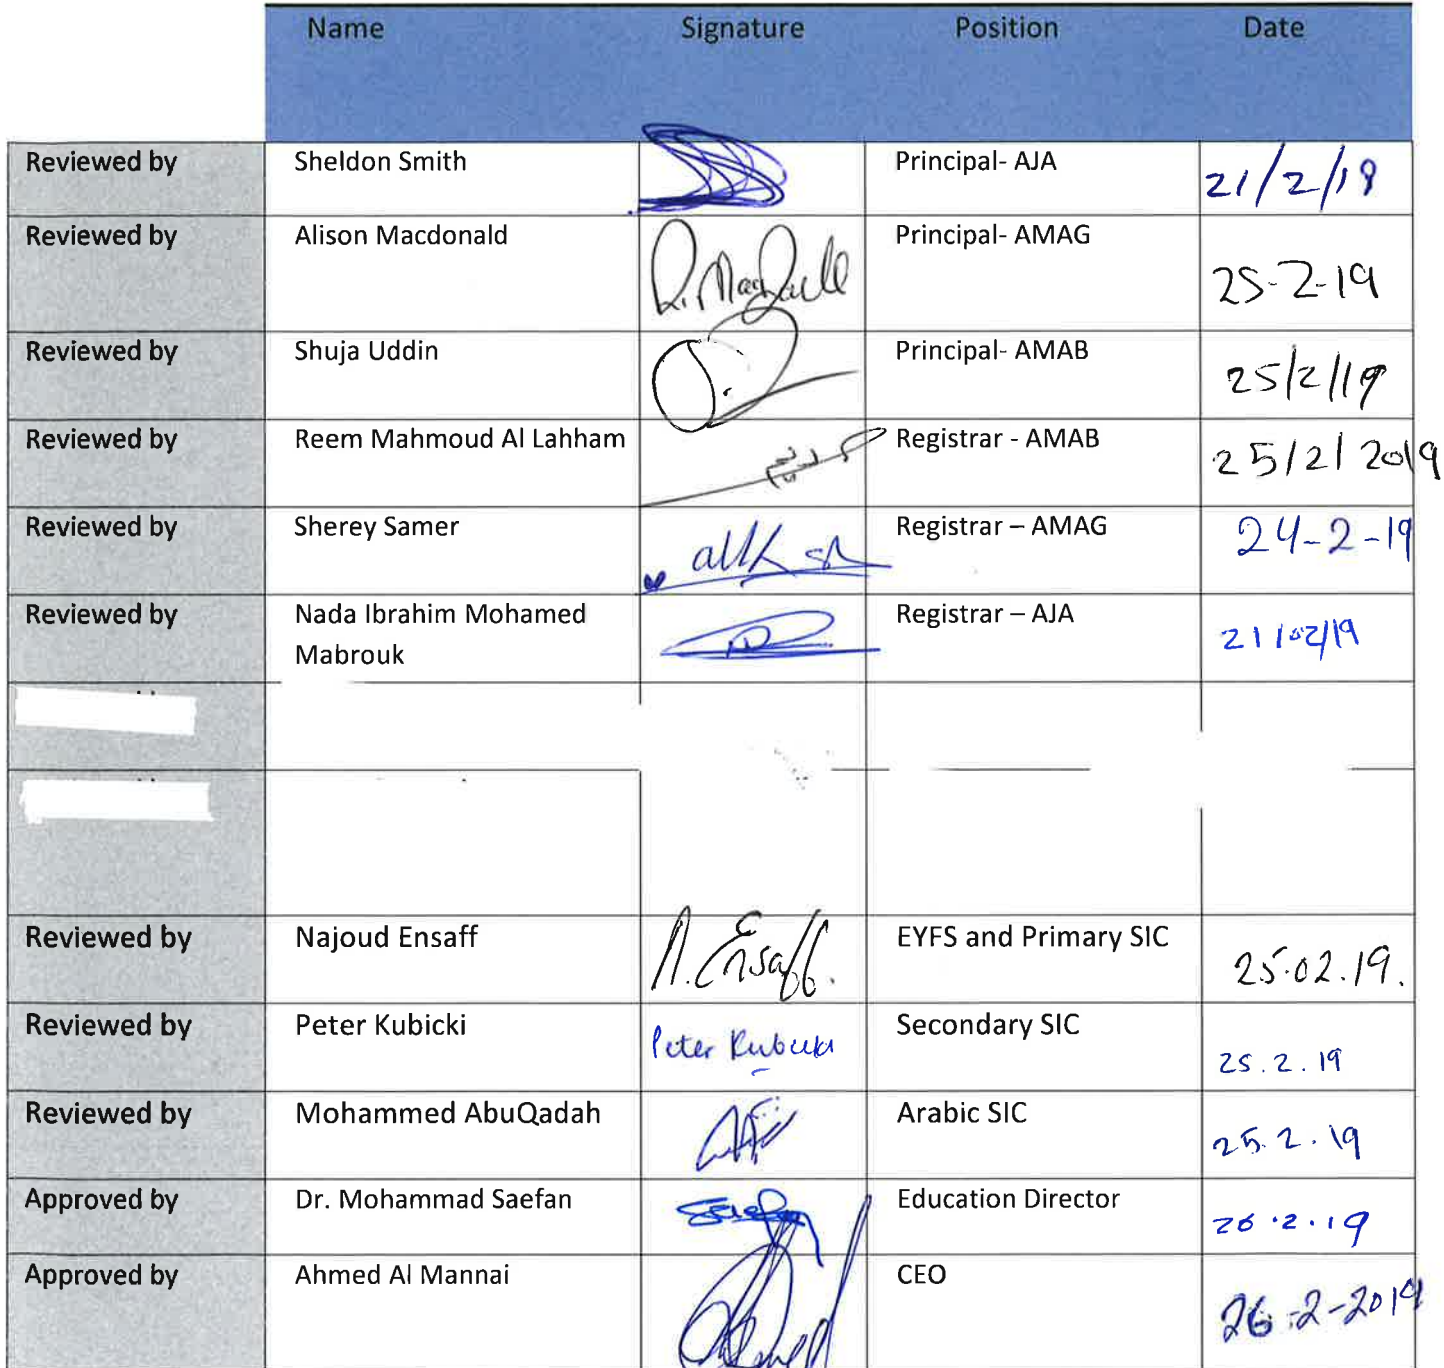 Name Signature Position Date
Reviewed by Sheldon Smith Principal- AJA 21/2/19
Reviewed by Alison Macdonald Principal- AMAG 25-2-19
Reviewed by Shuja Uddin Principal- AMAB 25/2/19
Reviewed by Reem Mahmoud Al Lahham Registrar - AMAB 25/2/2019
Reviewed by Sherey Samer Registrar – AMAG 24-2-19
Reviewed by Nada Ibrahim Mohamed Registrar – AJA 21/02/19
Mabrouk
Reviewed by Najoud Ensaff N. Ensaff. EYFS and Primary SIC 25.02.19.
Reviewed by Peter Kubicki Peter Kubicki Secondary SIC 25.2.19
Reviewed by Mohammed AbuQadah Arabic SIC 25.2.19
Approved by Dr. Mohammad Saefan Saefan Education Director 26.2.19
Approved by Ahmed Al Mannai CEO 26-2-2019